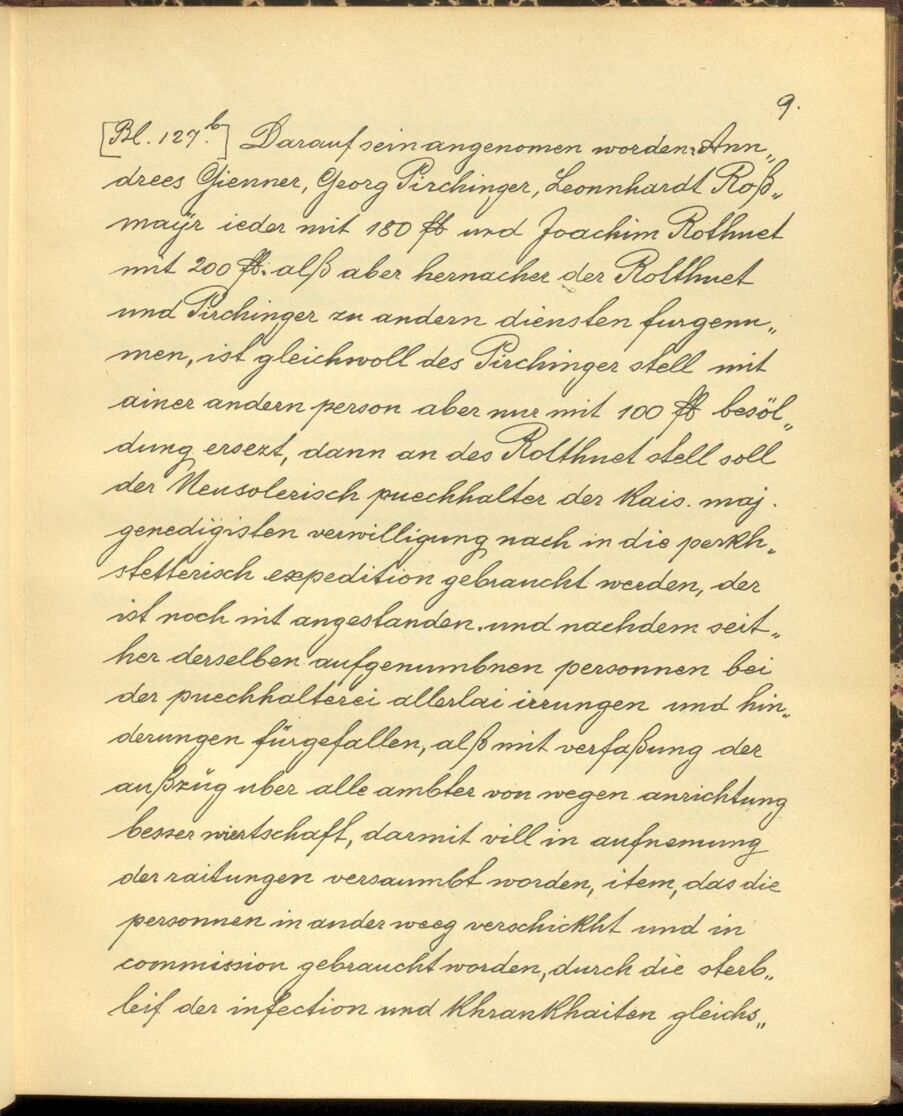 9.
[Bl. 127.b] Darauf sein angenomen worden: Ann„
drees Gienner, Georg Pirchinger, Leonnhardt Roß„
maÿr ieder mit 180 fl und Joachim Rothuet
mit 200 fl. alß aber hernacher der Rotthuet
und Pirchinger zu andern diensten furgenu„
men, ist gleichwoll des Pirchinger stell mit
ainer andern person aber nur mit 100 fl besöl„
dung ersezt, dann an des Rotthuet stell soll
der Neusolerisch puechhalter der Kais. maj.
genedigisten verwilligung nach in die perkh„
stetterisch expedition gebraucht werden, der
ist noch nit angestanden. und nachdem seit„
her derselben aufgenumbnen personnen bei
der puechhalterei allerlai irrungen und hin„
derungen fürgefallen, alß mit verfaßung der
außzüg uber alle ambter von wegen anrichtung
besser wiertschaft, darmit vill in aufnemung
der raitungen versaumbt worden, item, das die
personnen in ander weeg verschickht und in
commission gebraucht worden, durch die sterb„
leif der infection und Khrankhaiten gleichs„